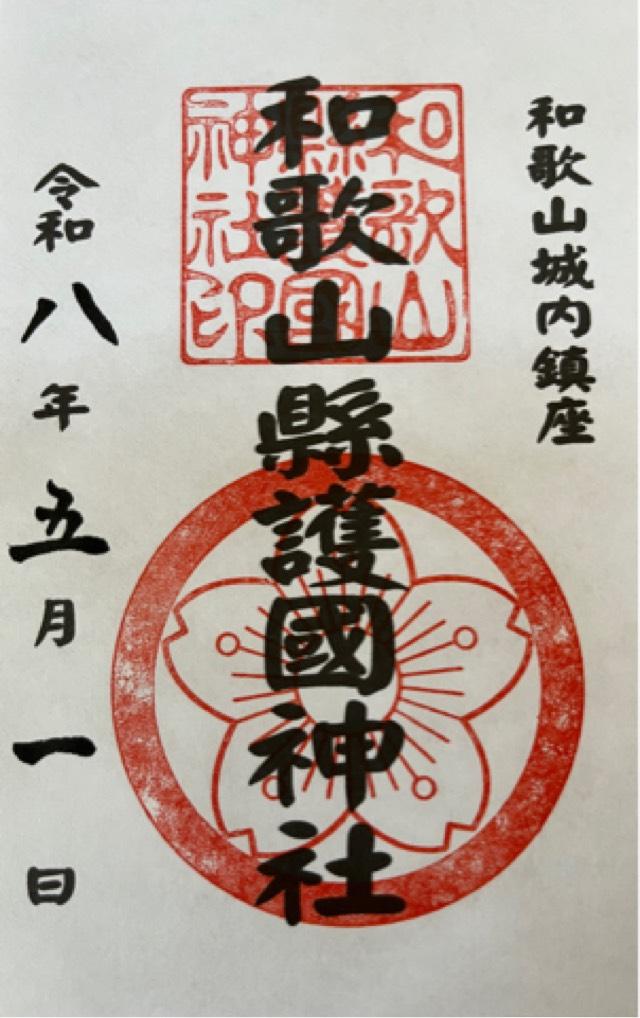 和歌山城内鎮座
和歌山縣護國神社
和歌山縣護國神社印
令和八年五月一日